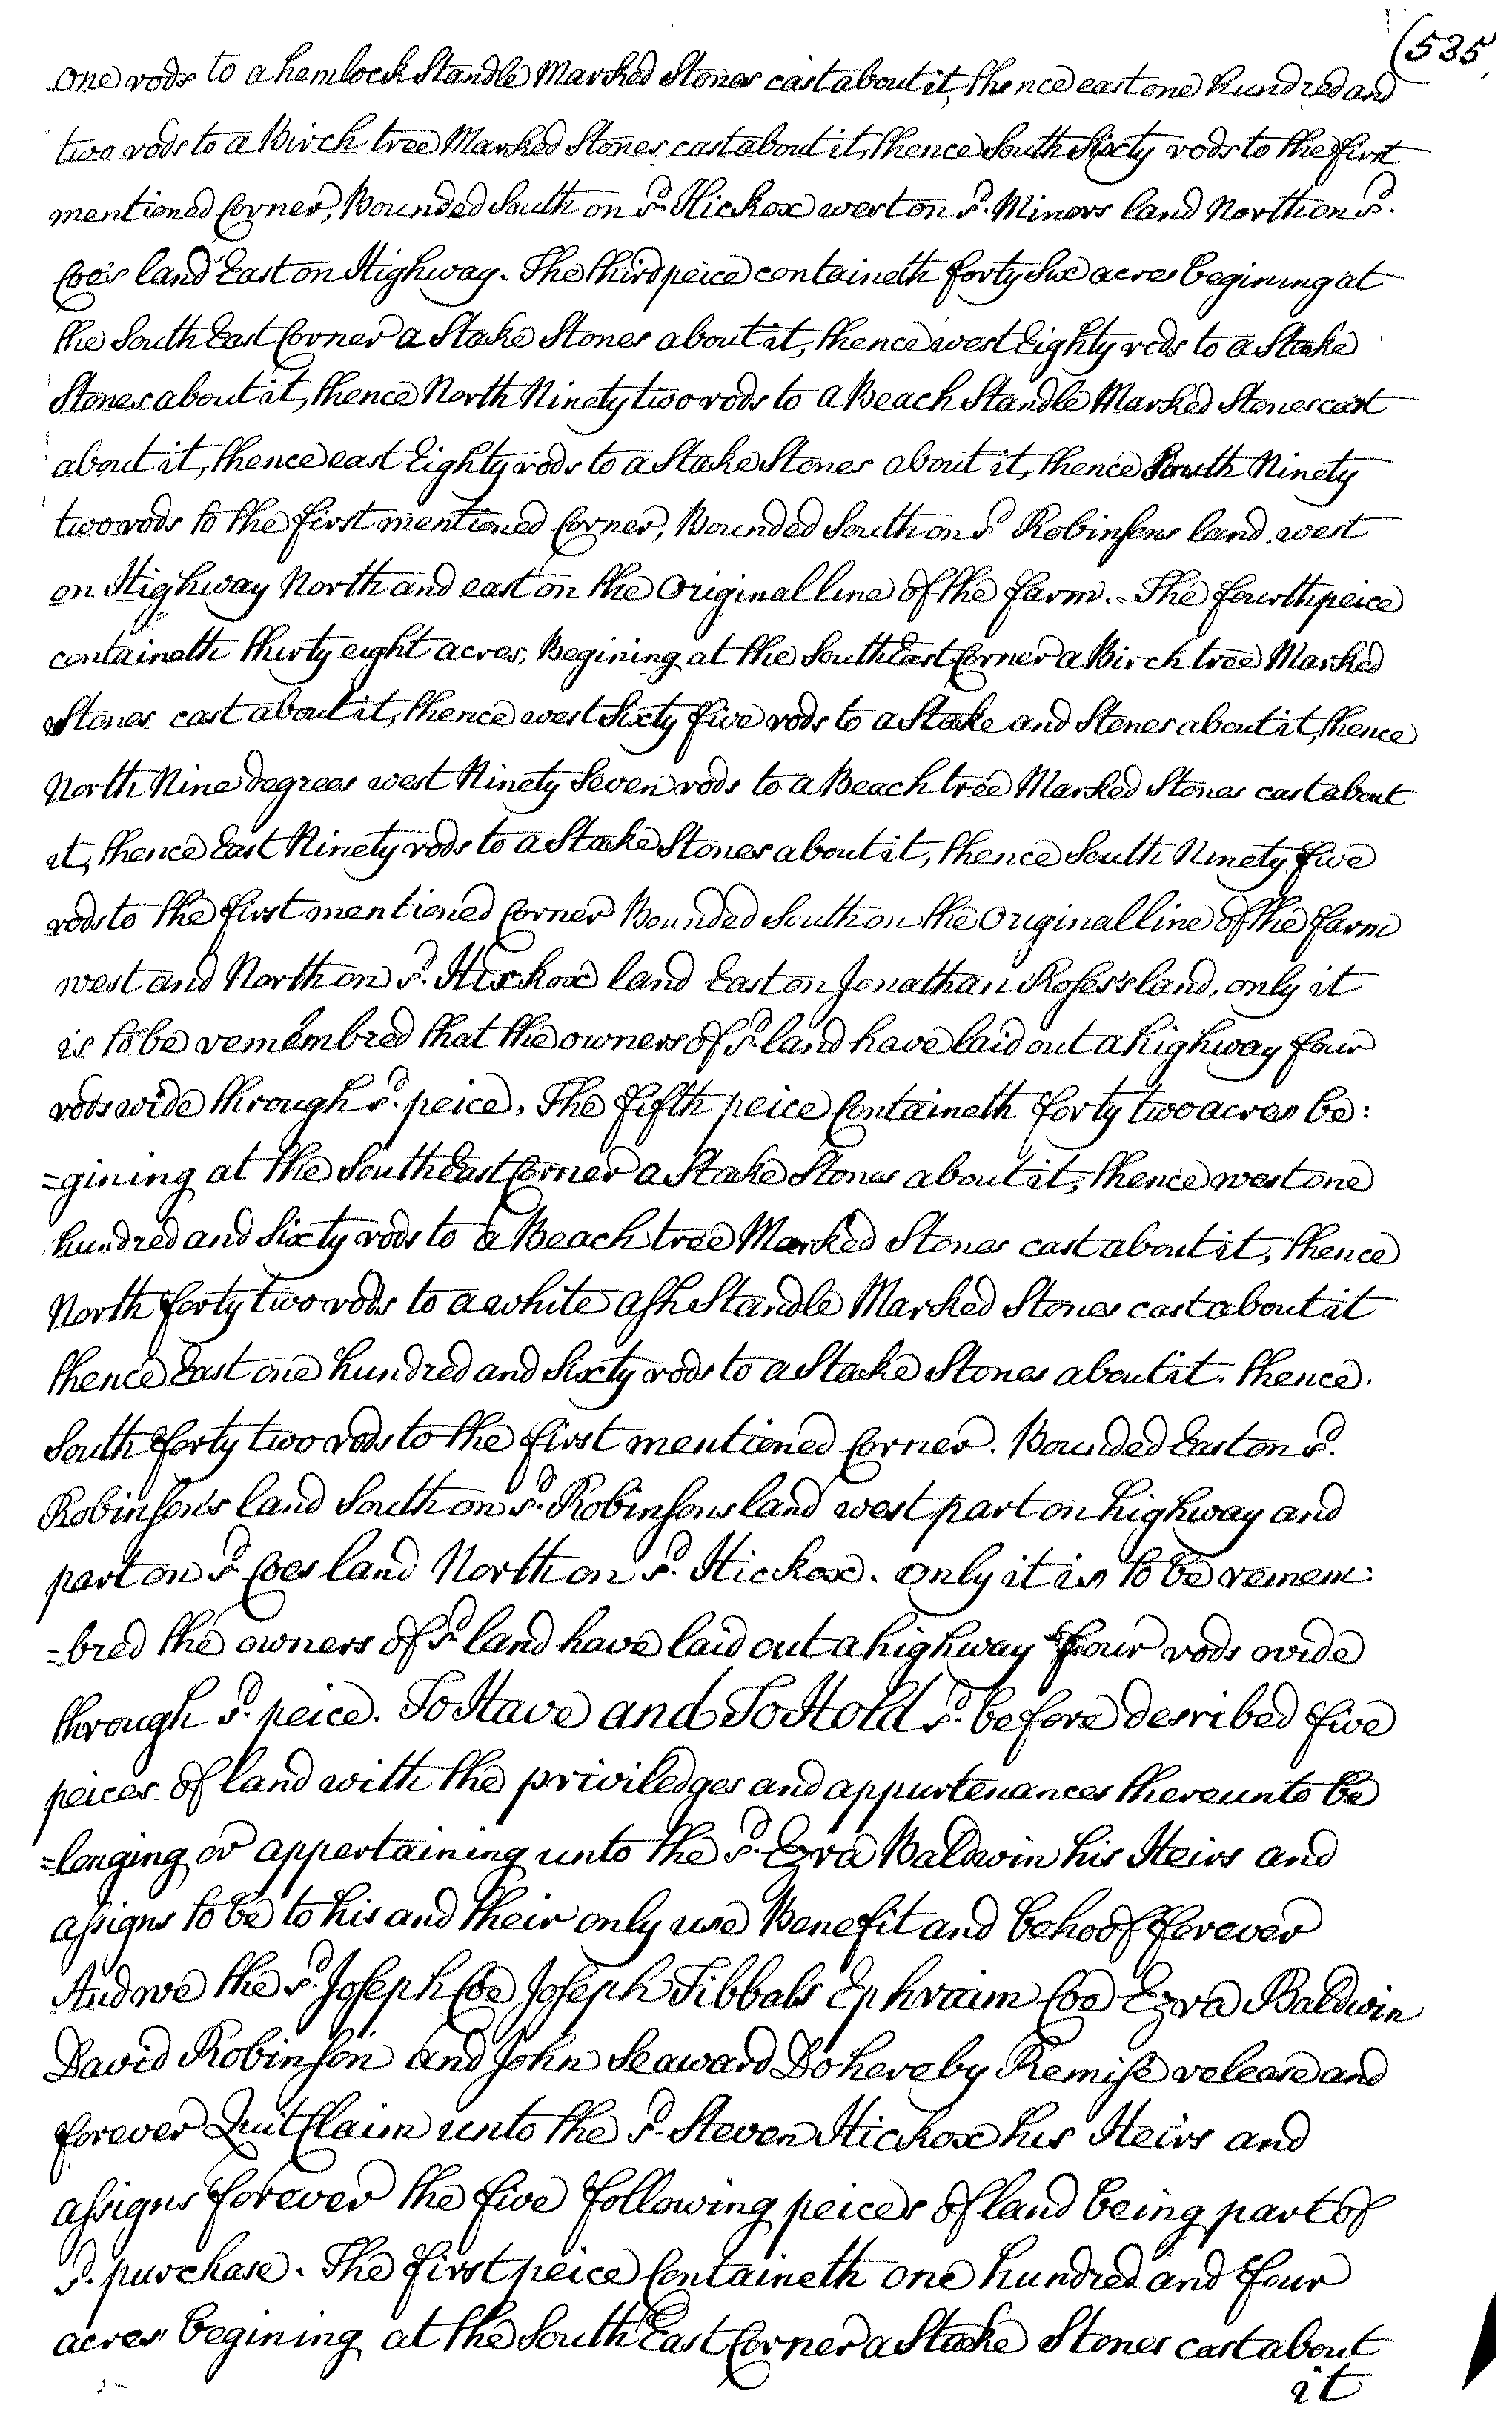 (535
one rods to a hemlock Standle Marked Stones cast about it, thence east one hundred and
two rods to a Birch tree Marked Stones cast about it, thence South Sixty rods to the first
mentioned Corner, Bounded South on sd. Hickox west on sd. Miners land North on sd.
Coe's land East on Highway. The third peice containeth forty Six acres begining at
the South East Corner a Stake Stones about it, thence west Eighty rods to a Stake
Stones about it, thence North Ninety two rods to a Beach Standle Marked Stones cast
about it, thence east Eighty rods to a Stake Stones about it, thence South Ninety
two rods to the first mentioned Corner, Bounded South on sd Robinsons land west
on Highway North and east on the Original line of the farm. - The fourth peice
containeth thirty eight acres, Begining at the South East Corner a Birch tree Marked
Stones cast about it, thence west Sixty five rods to a Stake and Stones about it, thence
North Nine degrees west Ninety Seven rods to a Beach tree Marked Stones cast about
it, thence East Ninety rods to a Stake Stones about it, thence South Ninety five
rods to the first mentioned Corner Bounded South on the Original line of the farm
west and North on sd. Hickox land East on Jonathan Roses's land, only it
is to be remembred that the owners of sd. land have laid out a highway four
rods wide through sd. peice. The fifth peice Containeth forty two acres be:
=gining at the South East Corner a Stake Stones about it, thence west one
hundred and Sixty rods to a Beach tree Marked Stones cast about it, thence
North forty two rods to a white ash Standle Marked Stones cast about it
thence East one hundred and Sixty rods to a Stake Stones about it. thence.
South forty two rods to the first mentioned Corner. Bounded East on sd.
Robinson's land South on sd. Robinsons land west part on highway and
part on sd Coes land North on sd. Hickox. only it is to be remem:
=bred the owners of sd land have laid out a highway four rods wide
through sd. peice. To Have and To Hold sd. before desribed five
peices of land with the priviledges and appurtenances thereunto be
=longing or appertaining unto the sd. Ezra Baldwin his Heirs and
assigns to be to his and their only use Benefit and behoof forever
And we the sd. Joseph Coe Joseph Tibbals Ephraim Coe Ezra Baldwin
David Robinson and John Seaward Do hereby Remise release and
forever Quit Claim unto the sd. Steven Hickox his Heirs and
assigns forever the five following peices of land being part of
sd. purchase. The first peice Containeth one hundred and four
acres begining at the South East Corner a Stake Stones cast about
it